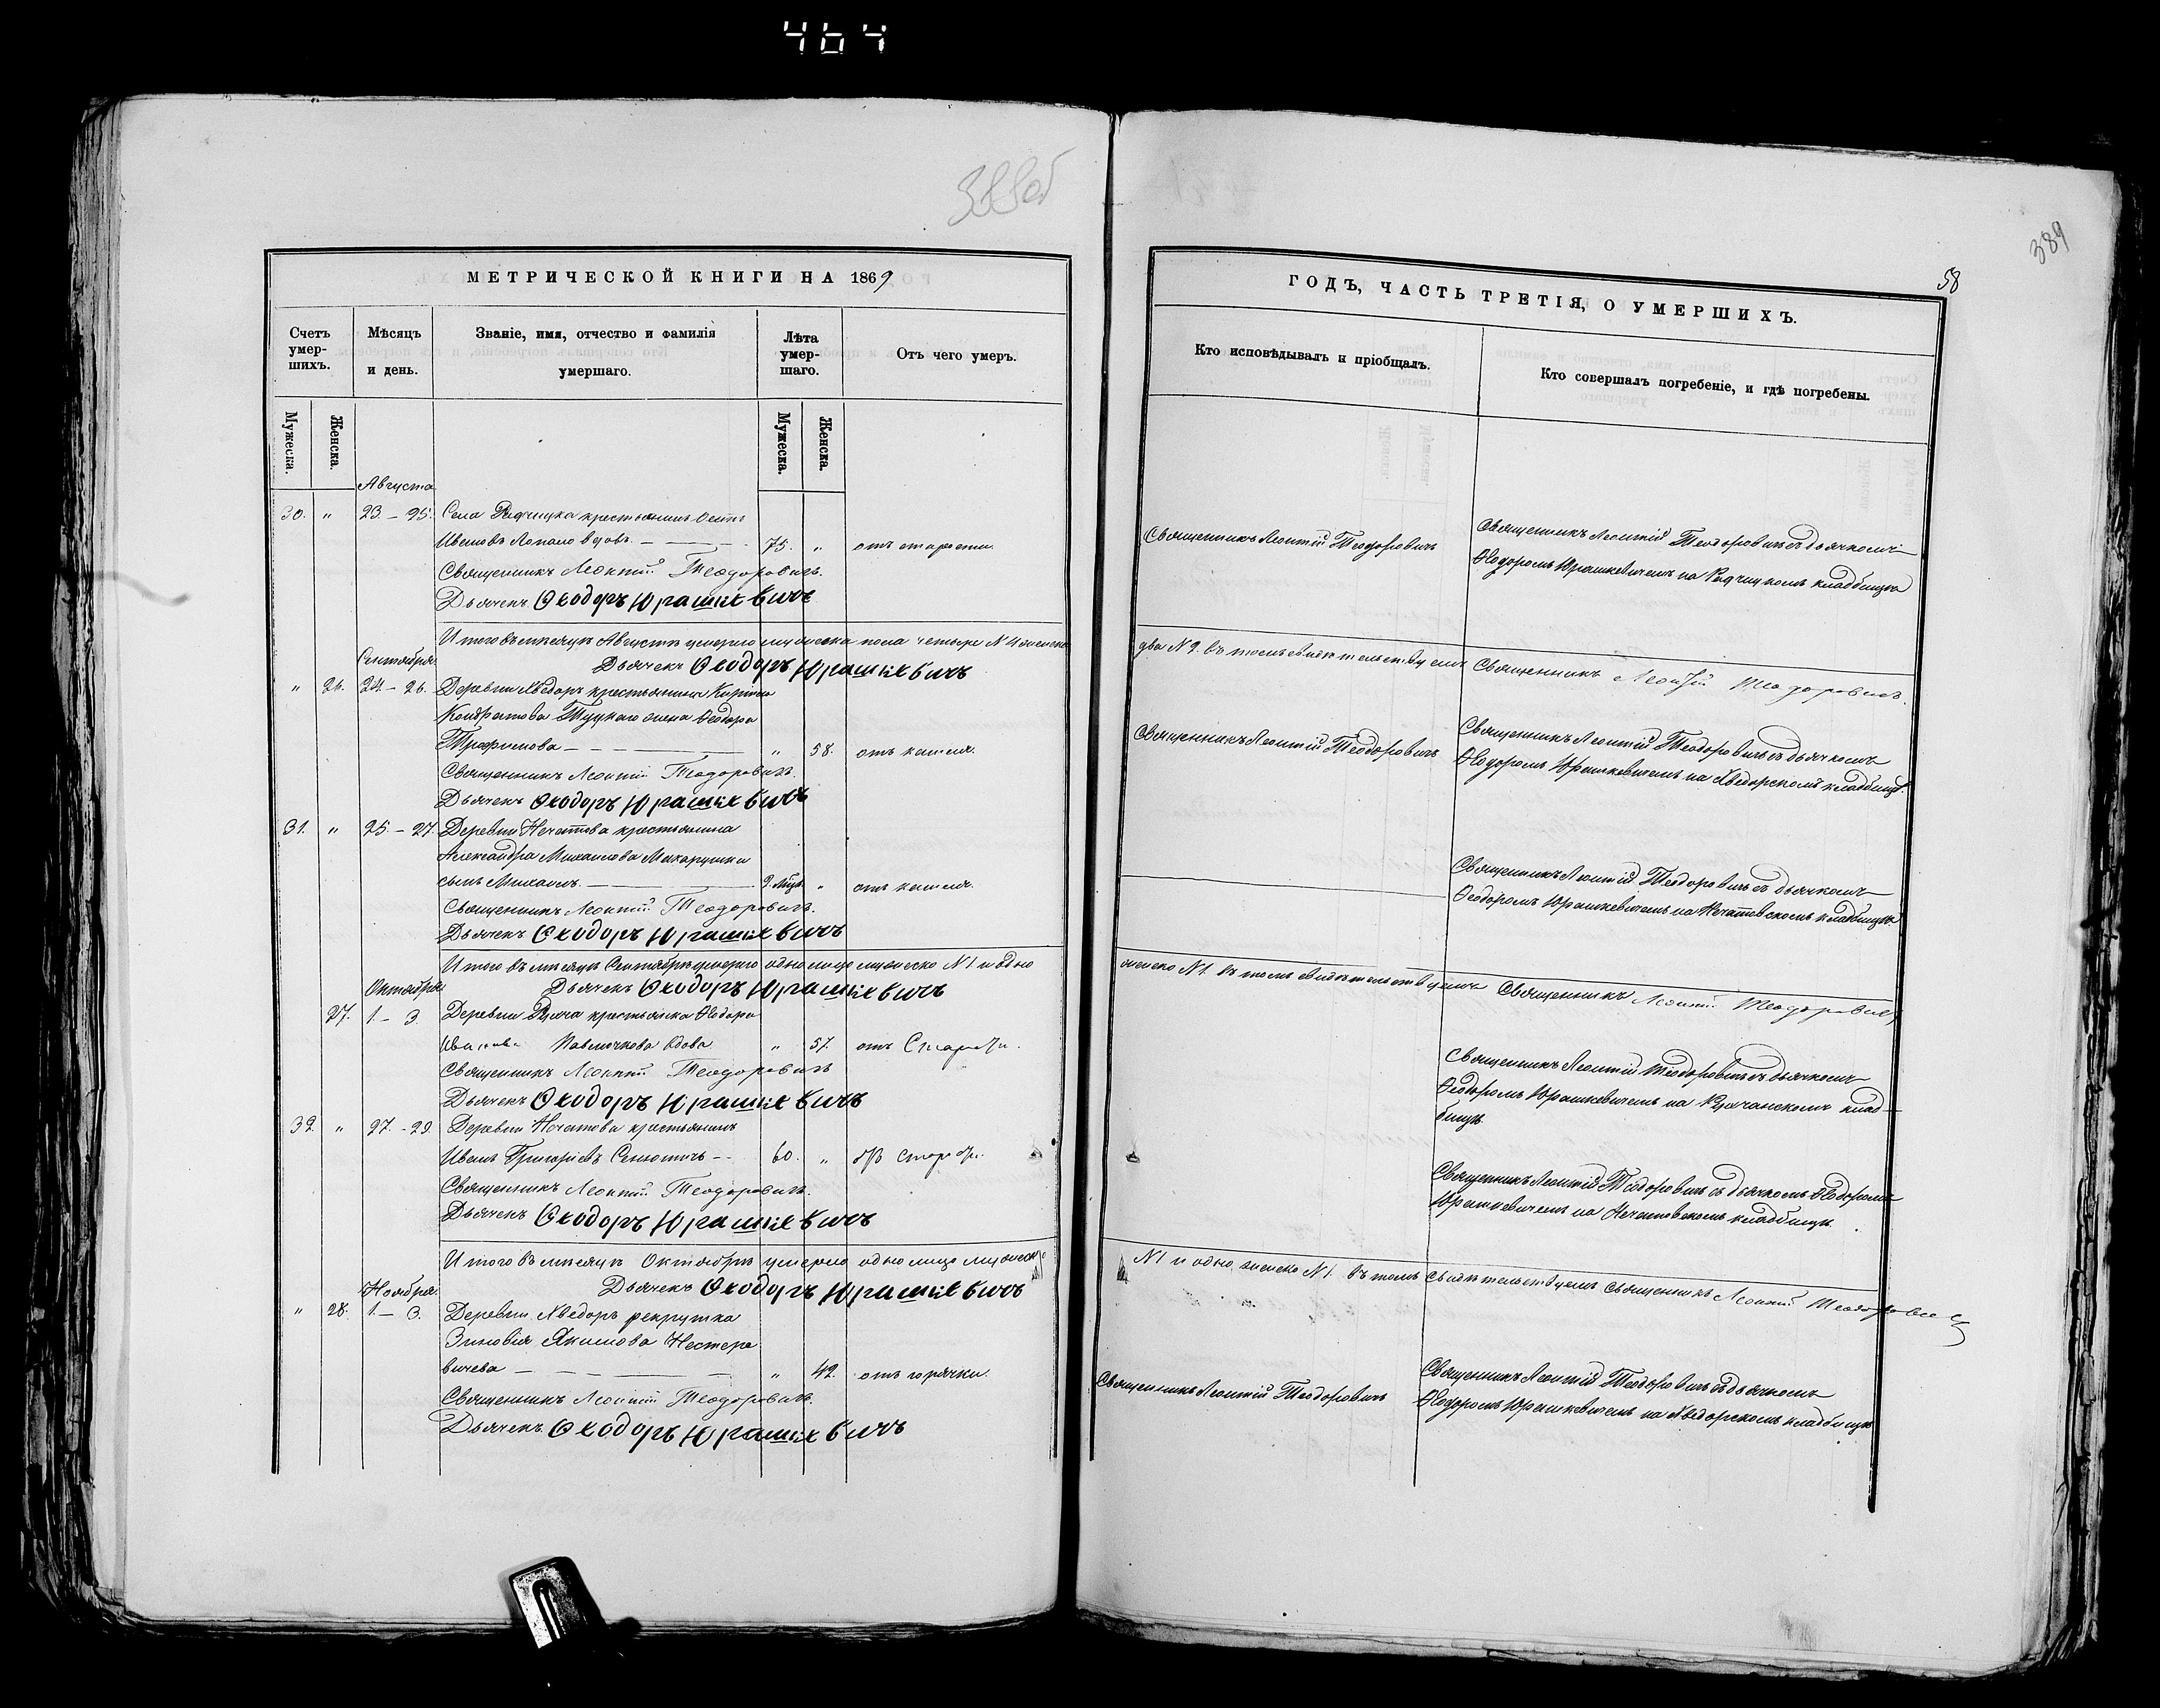 464
388об
389
58
МЕТРИЧЕСКОЙ КНИГИ НА 1869
Счетъ умер-шихъ.
Мѣсяцъ и день.
Званіе, имя, отчество и фамилія умершаго.
Лѣта умер-шаго.
Отъ чего умеръ.
Мужеска.
Женска.
Мужеска.
Женска.
Августа
30. " 23. – 25. Села Радчицка крестьянинъ Осипъ
Ивановъ вдовъ. – 75. " отъ старости.
Священникъ Леонтій Теодоровичъ.
Дьячекъ Ѳеодоръ Юрашкевичъ
Итого въ мѣсяцѣ Августѣ умерло мужеска пола четыре N 4 женска
Дьячекъ Ѳеодоръ Юрашкевичъ
Сентября
" 26. 24 – 26. Деревни Хведоръ крестьянина Кирила
Кондратова жена Ѳеодора
Трофимова – – – " 58. отъ кашля.
Священникъ Леонтій Теодоровичъ.
Дьячекъ Ѳеодоръ Юрашкевичъ
31. " 25. – 27. Деревни Нечатова крестьянина
Александра Михаилова Макарушки
сынъ Михаилъ. – 9. мѣц. " отъ кашля.
Священникъ Леонтій Теодоровичъ.
Дьячекъ Ѳеодоръ Юрашкевичъ
Итого въ мѣсяцѣ Сентябрѣ умерло одно лицо мужеско N 1 и одно
Дьячекъ Ѳеодоръ Юрашкевичъ
Октября
27. 1. – 3. Деревни крестьянка Ѳеодора
Иванова Павлючкова вдова " 57. отъ Старости.
Священникъ Леонтій Теодоровичъ
Дьячекъ Ѳеодоръ Юрашкевичъ
32. " 27. – 29. Деревни Нечатова крестьянинъ
Иванъ Григоріевъ Сенютичь – – 60. " отъ Старости.
Священникъ Леонтій Теодоровичъ.
Дьячекъ Ѳеодоръ Юрашкевичъ
Итого въ мѣсяцѣ Октябрѣ умерло одно лицо мужеско
Дьячекъ Ѳеодоръ Юрашкевичъ
Ноября
" 28. 1. – 3. Деревни Хведоръ рекрутка
Зиновія Якимова Нестера
вичева – – – " 42. отъ горячки.
Священникъ Леонтій Теодоровичъ.
Дьячекъ Ѳеодоръ Юрашкевичъ
ГОДЪ, ЧАСТЬ ТРЕТІЯ, О УМЕРШИХЪ.
Кто исповѣдывалъ и пріобщалъ.
Кто совершалъ погребеніе, и гдѣ погребены.
Священникъ Леонтій Теодоровичъ
Священникъ Леонтій Теодоровичъ съ дьячкомъ
Ѳеодоромъ Юрашкевичемъ на Радчицкомъ кладбищѣ
два N 2. въ томъ свидѣтельствуемъ Священникъ Леонтій Теодоровичъ.
Священникъ Леонтій Теодоровичъ
Священникъ Леонтій Теодоровичъ съ дьячкомъ
Ѳеодоромъ Юрашкевичемъ на Хведорскомъ кладбищѣ.
Священникъ Леонтій Теодоровичъ съ дьячкомъ
Ѳеодоромъ Юрашкевичемъ на Нечатовскомъ кладбищѣ.
женско N 1. въ томъ свидѣтельствуемъ Священникъ Леонтій Теодоровичъ
Священникъ Леонтій Теодоровичъ съ дьячкомъ
Ѳеодоромъ Юрашкевичемъ на клад-
бищѣ.
Священникъ Леонтій Теодоровичъ съ дьячкомъ Ѳеодоромъ
Юрашкевичемъ на Нечатовскомъ кладбищѣ.
N 1 и одно женско N 1. въ томъ свидѣтельствуемъ Священникъ Леонтій Теодоровичъ
Священникъ Леонтій Теодоровичъ
Священникъ Леонтій Теодоровичъ съ дьячкомъ
Ѳеодоромъ Юрашкевичемъ на Хведорскомъ кладбищѣ